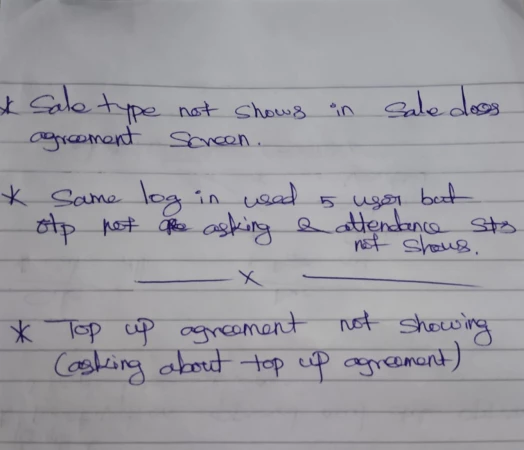 * Sale type not shows in Sale does
agreement Screen.
* Same log in used 5 user but
otp not asking & attendance sts
not shows.
x
* Top up agreement not showing
(asking about top up agreement)